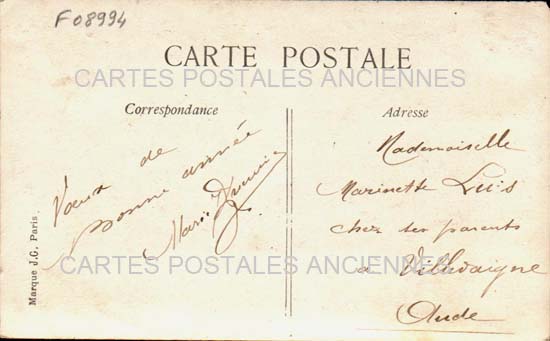 F08994
CARTE POSTALE
CARTES POSTALES ANCIENNES
Correspondance
Adresse
Voeux de
bonne année
Marie
Mademoiselle
Marinette Luis
chez ses parents
a Villedaigne
Aude
CARTES POSTALES ANCIENNES
Marque J.G. Paris